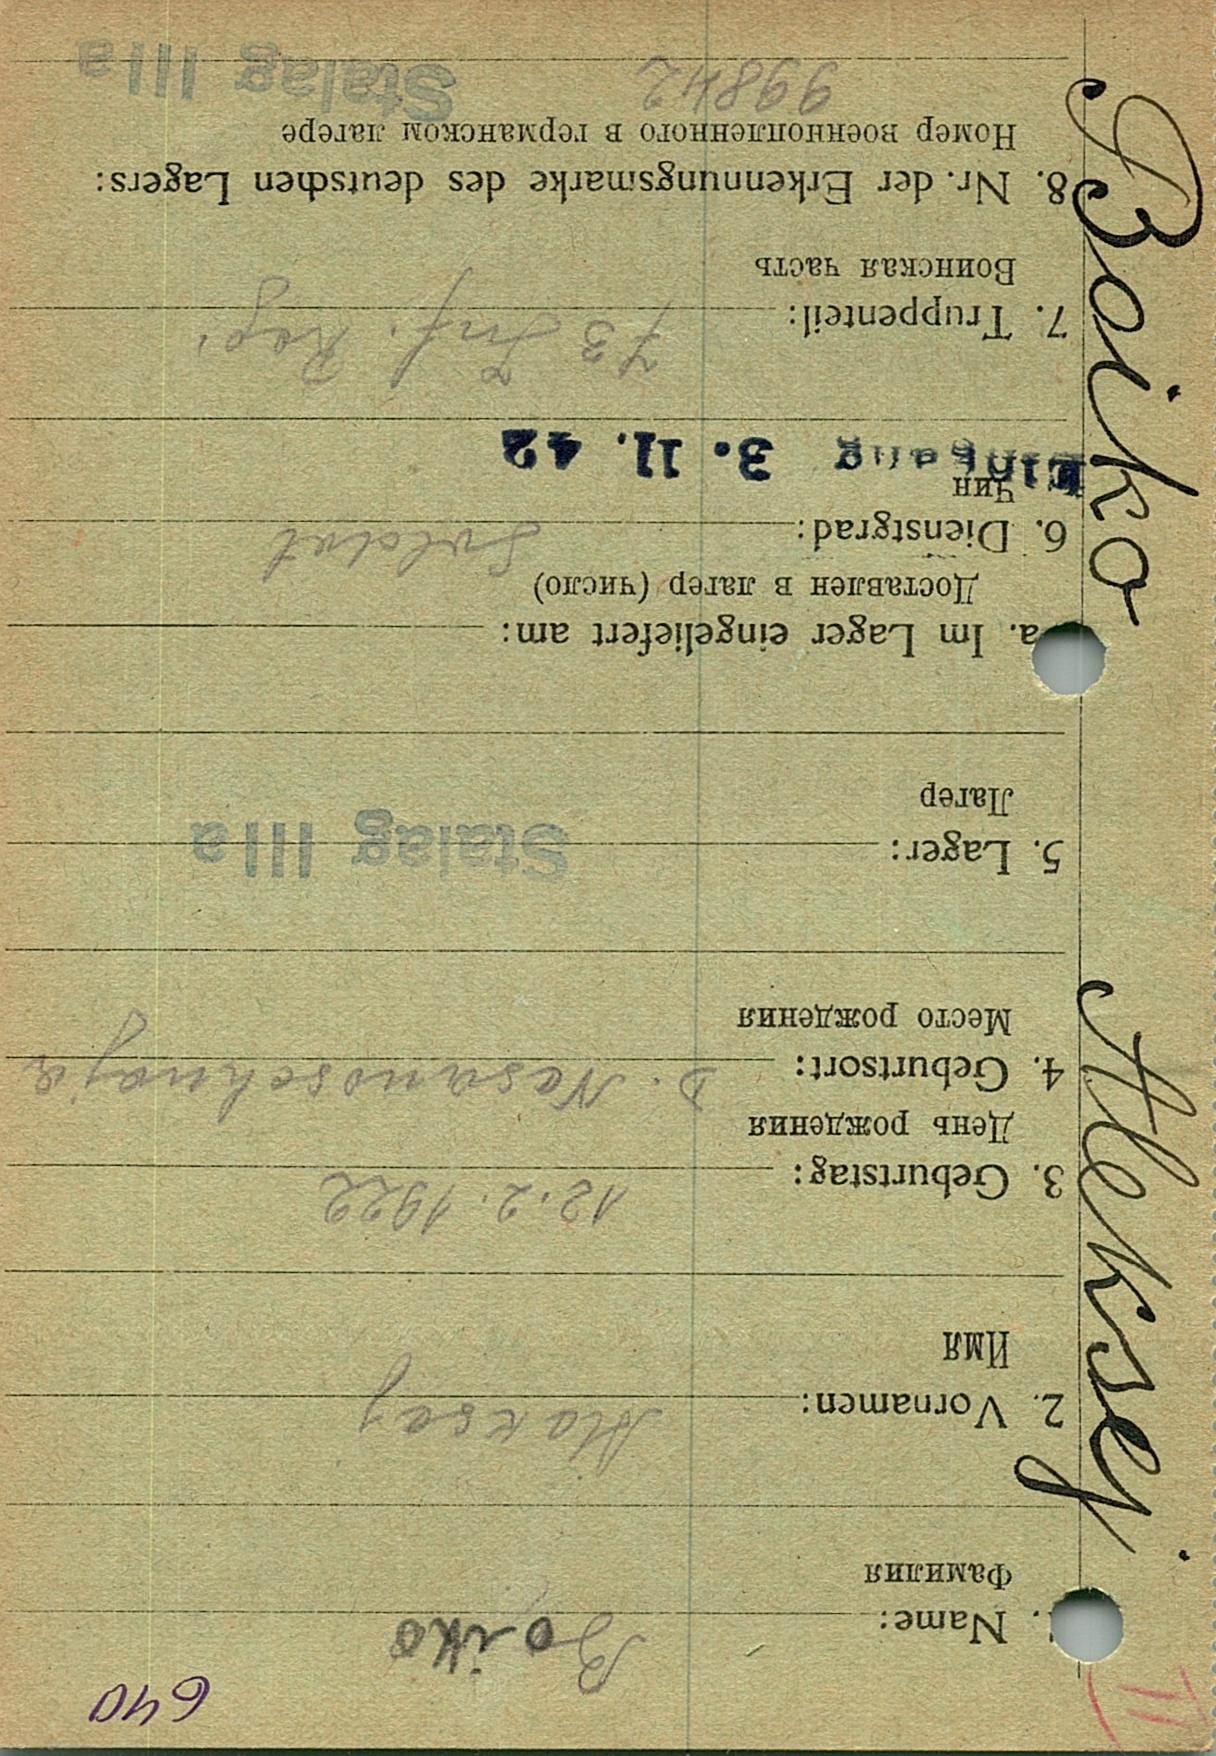 640
II
Boiko Aleksej
. Name: Boiko
Фамилия
2. Vornamen: Alaksej
Имя
3. Geburtstag: 12.2.1922
День рождения
4. Geburtsort: D.
Место рождения
5. Lager: Stalag IIIa
Лагер
a. Im Lager eingeliefert am:
Доставлен в лагер (число)
6. Dienstgrad: Soldat
Чин
Eingang 3. 11. 42
7. Truppenteil: 73 Inf. Reg.
Воинская часть
8. Nr. der Erkennungsmarke des deutschen Lagers:
Номер военнопленного в германском лагере
99842 Stalag IIIa